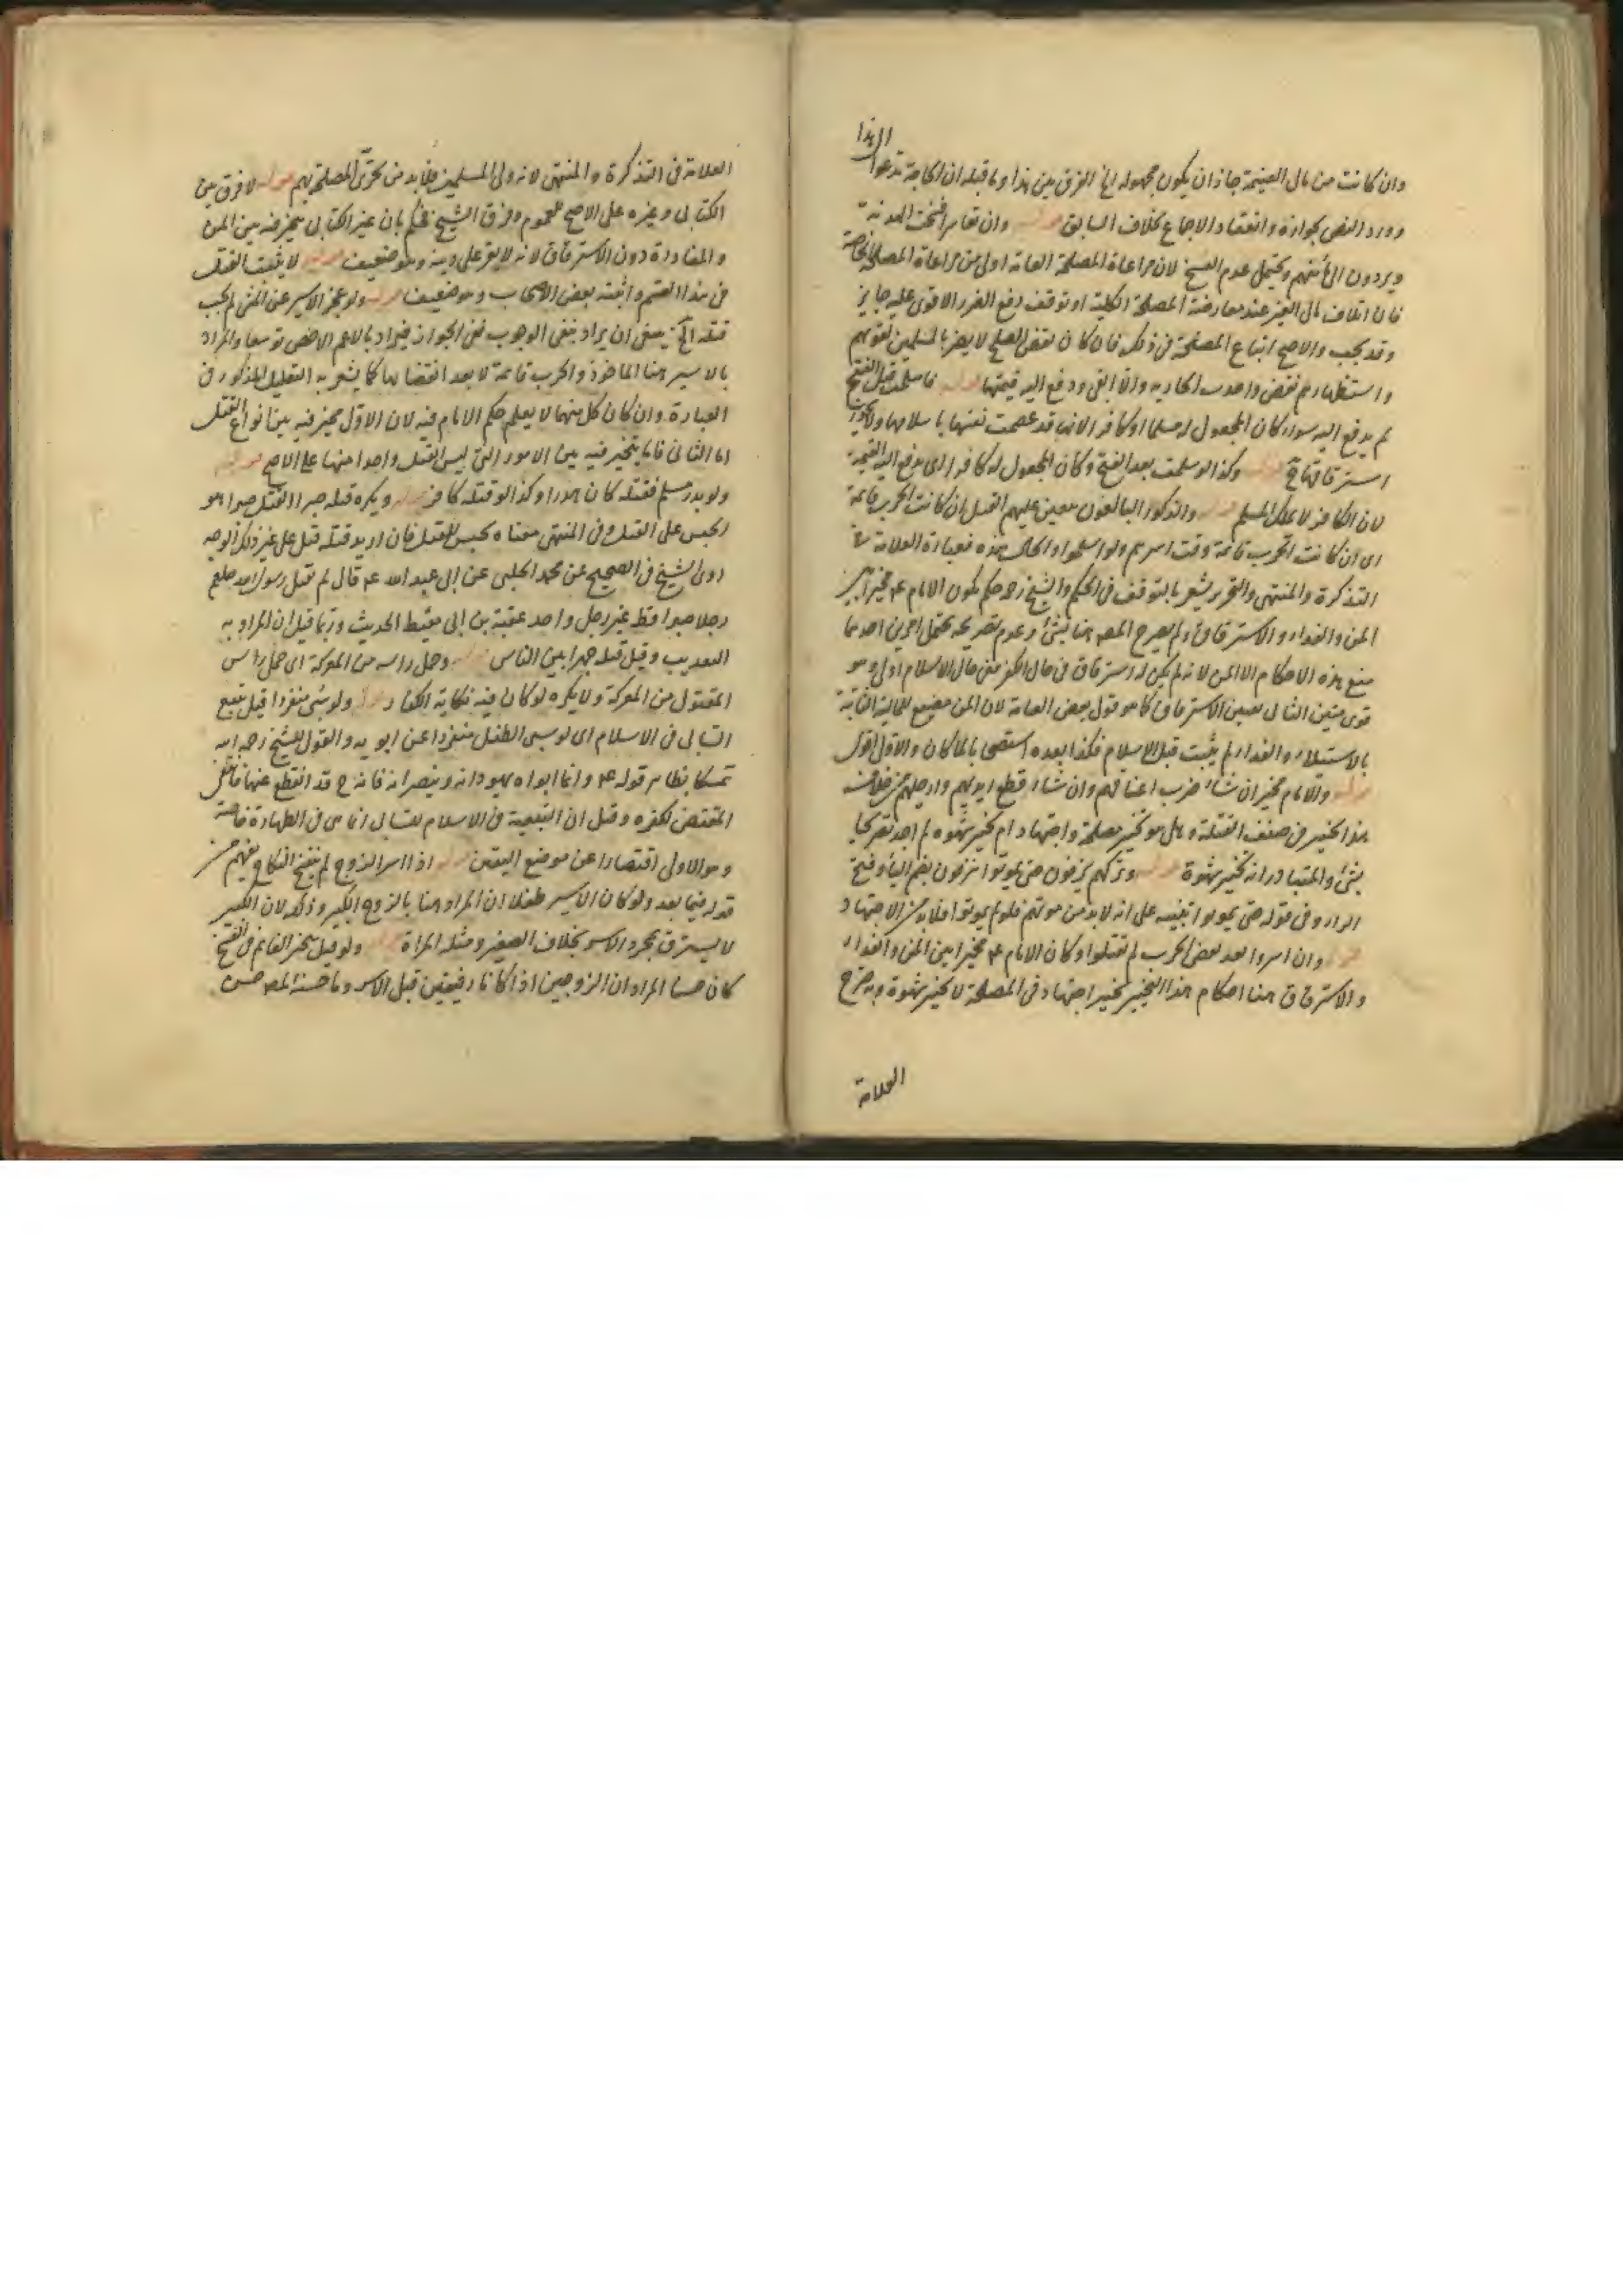 الى هذا
وان كانت من مال الغنيمة جاز ان يكون مجهوله الخ الفرق بين هذا وما قبله ان الحاجة تدعوا
وورد النص بجوازه وانعقاد الاجماع بخلاف السابق قوله وان تعاسرا فسخت الهدنة
ويردون الى مأمنهم ويحتمل عدم الفسخ لان مراعاة المصلحة العامة اولى من مراعاة المصلحة الخاصة
فان اتلاف مال الغير عند معارضة المصلحة الكلية او توقف دفع الضرر الاقوى عليه جايز
وقد يجب والاصح اتباع المصلحة في ذلك فان كان نقض الصلح لا يضر بالمسلمين لقوتهم
واستظهارهم نقض واخذت الجارية والا ابقى ودفع اليه قيمتها قوله فاسلمت قبل الفتح
لم يدفع اليه سواء كان المجعول له مسلما او كافرا لانها قد عصمت نفسها باسلامها ولا يجوز
استرقاقها ح قوله وكذا لو اسلمت بعد الفتح وكان المجعول له كافرا اى يدفع اليه القيمة
لان الكافر لا يملك المسلم قوله والذكور البالغون يتعين عليهم القتل ان كانت الحرب قائمة
اى ان كانت الحرب قائمة وقت اسرهم ولو اسلموا والحال هذه فعبارة العلامة في
التذكرة والمنتهى والتحرير يشعر بالتوقف في الحكم والشيخ ره حكم بكون الامام ع مخيرا بين
المن والفداء والاسترقاق ولم يصرح المصـ هنا بشئ وعدم تصريحه يحتمل امرين احدهما
منع هذه الاحكام الا المن لانه لم يكن له استرقاق في حال الكفر ففي حال الاسلام اولى وهو
قوى متين الثانى تعيين الاسترقاق كما هو قول بعض العامة لان المن مضيع للمالية الثابتة
بالاستيلاء والفداء لم يثبت قبل الاسلام فكذا بعده استصحابا لما كان والاول اقوى
قوله والامام مخير ان شاء ضرب اعناقهم وان شاء قطع ايديهم وارجلهم من خلاف
هذا تخيير في صنف القتلة وهل هو تخيير مصلحة واجتهاد ام تخيير شهوة لم اجد تصريحا
بشئ والمتبادر انه تخيير شهوة قوله وتركهم ينزفون حتى يموتوا ينزفون بضم الياء وفتح
الزاء وفي قوله حتى يموتوا تنبيه على انه لابد من موتهم فلو لم يموتوا فلابد من الاجتهاد
قوله وان اسروا بعد تقضى الحرب لم يقتلوا وكان الامام ع مخيرا بين المن والفداء
والاسترقاق هنا احكام هذا التخيير تخيير اجتهاد في المصلحة لا تخيير شهوة وبه صرح
العلامة
العلامة في التذكرة والمنتهى لانه ولى المسلمين فلابد من تحرى المصلحة لهم قوله لا فرق بين
الكتابى وغيره على الاصح للعموم وفرق الشيخ فحكم بان غير الكتابى يتخير فيه بين المن
والمفاداة دون الاسترقاق لانه لا يقر على دينه وهو ضعيف قوله لا يثبت القتل
في هذا القسم واثبته بعض الاصحاب وهو ضعيف قوله ولو عجز الاسير عن المشى لم يجب
قتله الخ ينبغى ان يراد بنفى الوجوب نفى الجواز فيراد بالاعم الاخص توسعا والمراد
بالاسير هنا الماخوذ والحرب قائمة لا بعد انقضائها كما يشعر به التعليل المذكور في
العبارة وان كان كل منهما لا يعلم حكم الامام فيه لان الاول مخير فيه بين انواع القتل
اما الثانى فانما يتخير فيه بين الامور التى ليس القتل واحدا منها على الاصح قوله
ولو بدر مسلم فقتله كان هدرا وكذا لو قتله كافر قوله ويكره قتله صبرا القتل صبرا هو
الحبس على القتل وفي المنتهى معناه يحبس للقتل فان اريد قتله قتل على غير ذلك الوجه
روى الشيخ في الصحيح عن محمد الحلبى عن ابى عبد الله ع قال لم يقتل رسول الله صلعم
رجلا صبرا قط غير رجل واحد عقبة بن ابى معيط الحديث وربما قيل ان المراد به
التعذيب وقيل قتله جهرا بين الناس قوله وحمل راسه من المعركة اى حمل راس
المقتول من المعركة ولا يكره لو كان فيه نكاية الكفار قوله ولو سبى منفردا قيل يتبع
السابى في الاسلام اى لو سبى الطفل منفردا عن ابويه والقول للشيخ رحمه الله
تمسكا بظاهر قوله ع وانما ابواه يهودانه وينصرانه فانه ح قد انقطع عنهما فانتفى
المقتضى لكفره وقيل ان التبعية في الاسلام للسابى انما هى في الطهارة خاصة
وهو الاولى اقتصارا عن موضع اليقين قوله اذا اسر الزوج لم ينفسخ النكاح يفهم من
قوله فيما بعد ولو كان الاسير طفلا ان المراد هنا بالزوج الكبير وذلك لان الكبير
لا يسترق بمجرد الاسر بخلاف الصغير ومثله المراة قوله ولو قيل بتخير الغانم في الفسخ
كان حسنا المراد ان الزوجين اذا كانا رقيقين قبل الاسر وما حسنه المصـ حسن